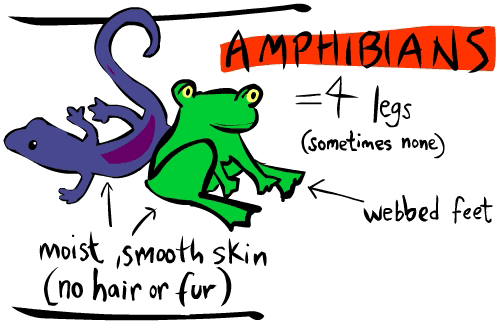 AMPHIBIANS
=4 legs
(sometimes none)
webbed feet
moist, smooth skin
(no hair or fur)